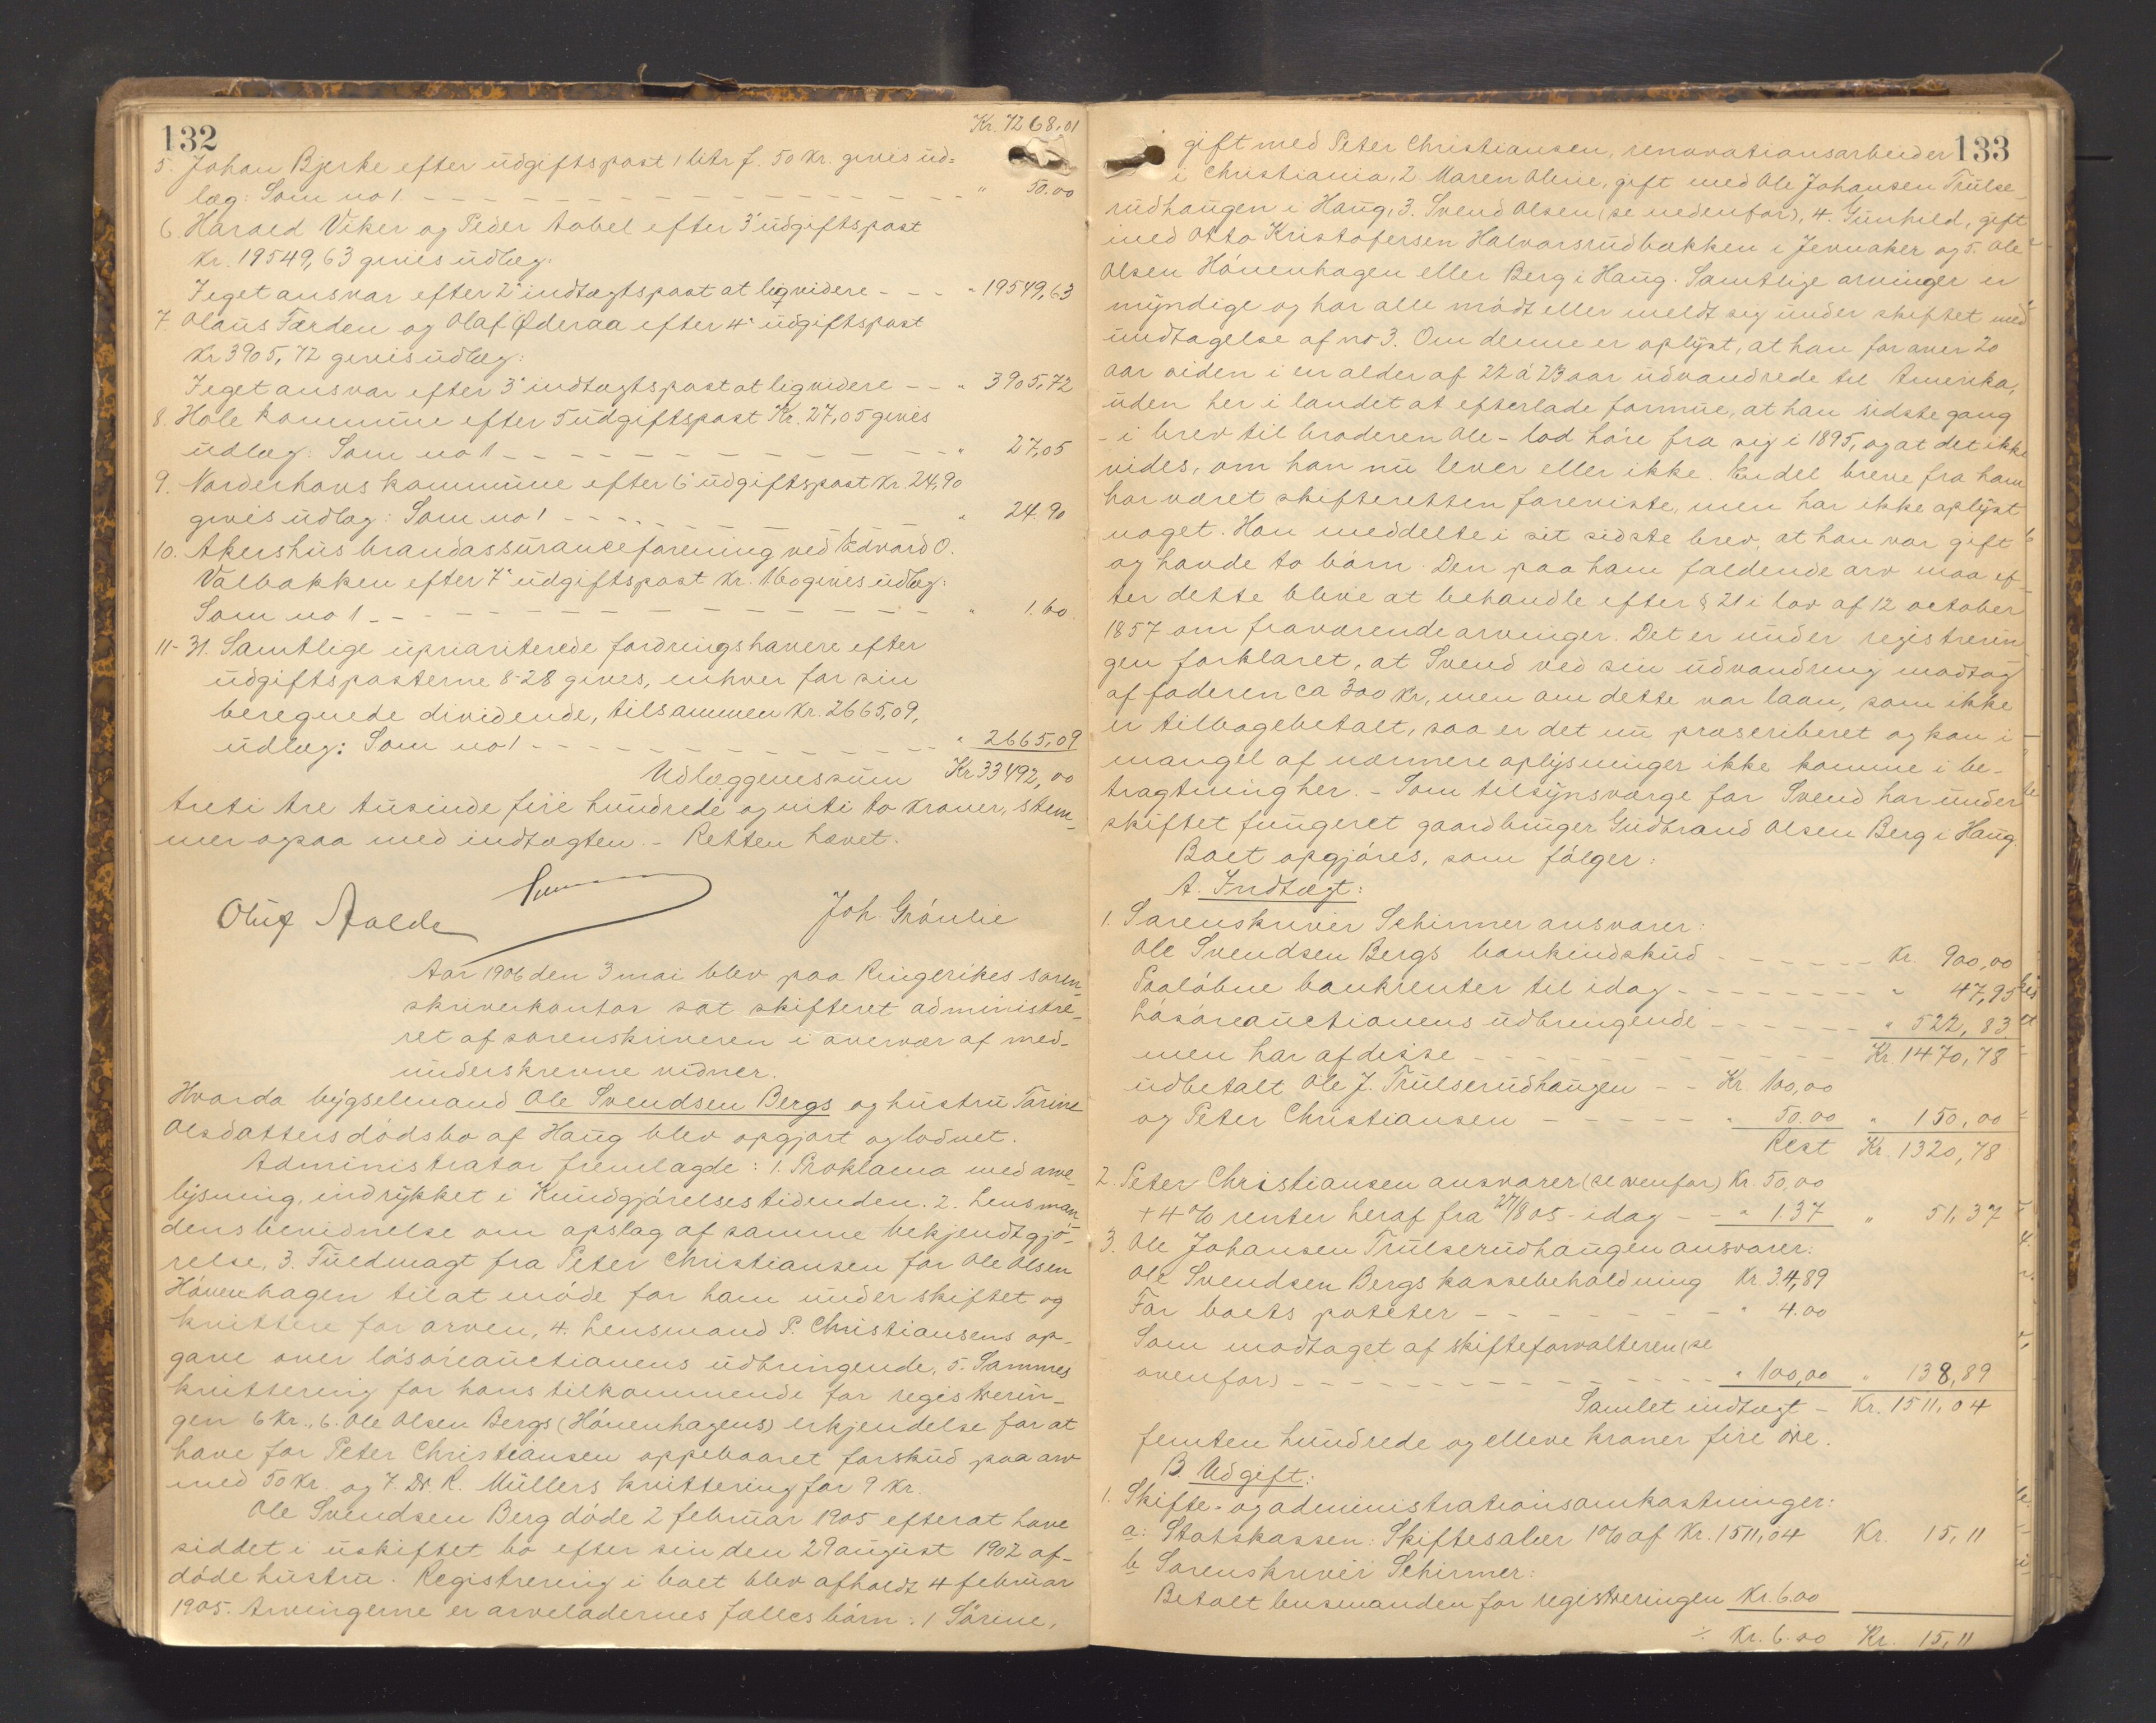 132
Kr. 7268,01
5. Johan Bjerke efter udgiftspost 1 litr f. 50 kr. gives ud=
læg: Som no 1. - - - " 50.00
6. Harald Viker og Peder Aabel efter 3' udgiftspost
Kr. 19549,63 gives udlæg:
I eget ansvar efter 2' indtægtspost at liqvidere - - - " 19549,63
7. Olaus Færden og Olaf Øderaa efter 4' udgiftspost
Kr 3905,72 gives udlæg:
I eget ansvar efter 3' indtægtspost at liqvidere - - " 3905,72
8. Hole kommune efter 5 udgiftspost Kr. 27,05 gives
udlæg: Som no 1 - - - " 27,05
9. Norderhovs kommune efter 6' udgiftspost Kr. 24,90
gives udlæg: Som no 1 - - - " 24.90
10. Akershus brandassuranceforening ved Edvard O.
Valbakken efter 7' udgiftspost Kr. 1.60 gives udlæg:
Som no 1 - - - " 1.60
11-31. Samtlige uprioriterede fordringshavere efter
udgiftsposterne 8-28 gives, enhver for sin
beregnede dividende, tilsammen Kr. 2665,09,
udlæg: Som no 1 - - - " 2665,09
Udlæggenes sum Kr 33492,00
treti tre tusinde fire hundrede og niti to kroner, stem-
mer ogsaa med indtægten. - Retten hævet.
Oluf Aalde
Joh. Grønlie
Aar 1906 den 3 mai blev paa Ringerikes soren-
skriverkontor sat skifteret administre-
ret af sorenskriveren i overvær af med-
underskrevne vidner.
Hvorda bygselmand Ole Svendsen Bergs og hustru Tarine
Olsdatters dødsbo af Haug blev opgjort og lodnet.
Administrator fremlagde: 1. Proklama med arve-
lysning, indrykket i Kundgjørelsestidenden. 2. Lensman-
dens bevidnelse om opslag af samme bekjendtgjø-
relse, 3. Fuldmagt fra Peter Christiansen for Ole Olsen
Hovenhagen til at møde for ham under skiftet og
kvittere for arven, 4. Lensmand P. Christiansens op-
gave over løsøreauctionens udbringende, 5. Sammes
kvittering for hans tilkommende for registrerin-
gen 6 Kr., 6. Ole Olsen Bergs (Hovenhagens) erkjendelse for at
have for Peter Christiansen oppebaaret forskud paa arv
med 50 Kr. og 7. Dr. R. Müllers kvittering for 9 Kr.
Ole Svendsen Berg døde 2 februar 1905 efterat have
siddet i uskiftet bo efter sin den 29 august 1902 af-
døde hustru. Registrering i boet blev afholdt 4 februar
1905. Arvingerne er arveladernes fælles børn: 1 Sørine,
133
gift med Peter Christiansen, renovationsarbeider
i Christiania, 2. Maren Oline, gift med Ole Johansen Trulse-
rudhaugen i Haug, 3. Svend Olsen (se nedenfor), 4. Gunhild, gift
med Otto Kristofersen Halvorsrudbækken i Jevnaker og 5. Ole
Olsen Hovenhagen eller Berg i Haug. Samtlige arvinger er
myndige og har alle mødt eller meldt sig under skiftet med
undtagelse af no 3. Om denne er oplyst, at han for over 20
aar siden i en alder af 22 à 23 aar udvandrede til Amerika,
uden her i landet at efterlade formue, at han sidste gang
- i brev til broderen Ole - lod høre fra sig i 1895, og at det ikke
vides, om han nu lever eller ikke. En del breve fra ham
har været skifteretten foreviste, men har ikke oplyst
noget. Han meddelte i sit sidste brev, at han var gift
og havde to børn. Den paa ham faldende arv maa ef-
ter dette blive at behandle efter § 21 i lov af 12 october
1857 om fraværende arvinger. Det er under registrerin
gen forklaret, at Svend ved sin udvandring modtog
af faderen ca 300 Kr, men om dette var laan, som ikke
er tilbagebetalt, saa er det nu præscriberet og kan i
mangel af nærmere oplysninger ikke komme i be-
tragtning her. - Som tilsynsværge for Svend har under
skiftet fungeret gaardbruger Gudbrand Olsen Berg i Haug
Boet opgjøres, som følger:
A. Indtægt:
1. Sorenskriver Schirmer ansvarer:
Ole Svendsen Bergs bankindskud - - - Kr. 900,00
Paaløbne bankrenter til idag - - - " 47,95
Løsøreauctionens udbringende - - - " 522,83
men har af disse - - - Kr. 1470,78
udbetalt Ole J. Trulserudhaugen - - Kr. 100,00
og Peter Christiansen - - - " 50.00 " 150,00
Rest Kr. 1320,78
2. Peter Christiansen ansvarer (se ovenfor) Kr. 50,00
+ 4% renter heraf fra 27/8 05 - idag - - " 1.37 " 51,37
3. Ole Johansen Trulserudhaugen ansvarer:
Ole Svendsen Bergs kassebeholdning Kr. 34,89
For boets poteter - - - " 4.00
Som modtaget af skifteforvalteren (se
ovenfor) - - - " 100,00 " 138,89
Samlet indtægt - Kr. 1511,04
femten hundrede og elleve kroner fire øre.
B. Udgift:
1. Skifte- og administrationsomkostninger:
a: Statskassen: Skiftesalær 1% af Kr. 1511,04 Kr. 15,11
b Sorenskriver Schirmer:
Betalt lensmanden for registreringen Kr. 6.00
÷ Kr. 6.00 Kr. 15,11